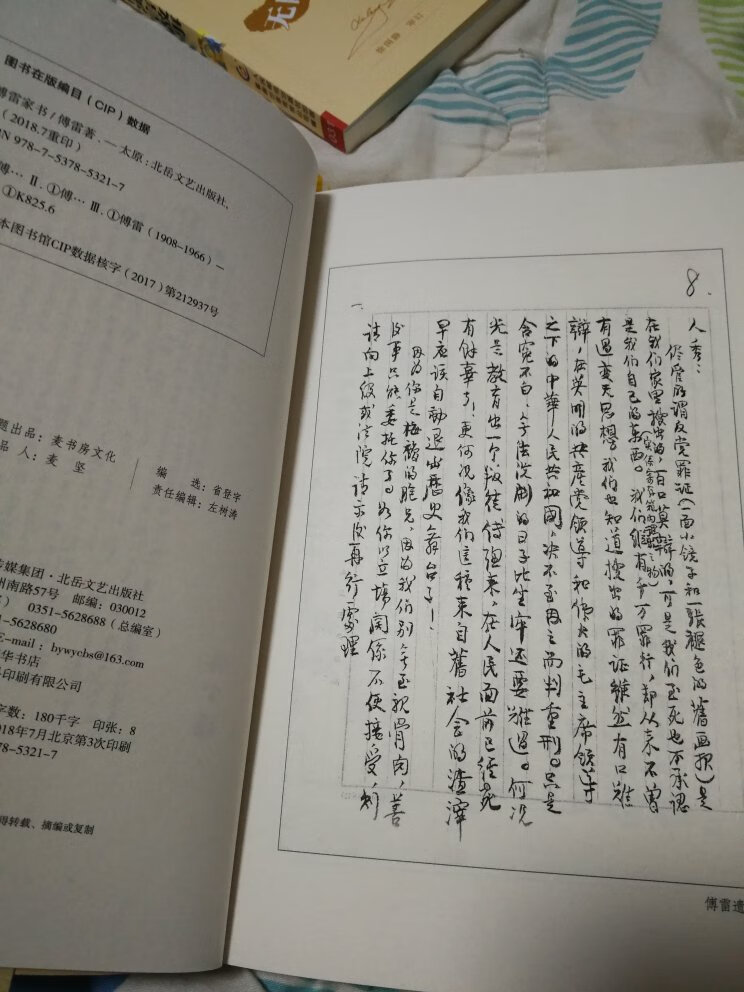 图书在版编目（CIP）数据
傅雷家书/傅雷著.—太原：北岳文艺出版社，
（2018.7重印）
978-7-5378-5321-7
傅… Ⅱ.①傅… Ⅲ.①傅雷（1908-1966）—
①K825.6
本图书馆CIP数据核字（2017）第212937号
题出品：麦书房文化
品人：麦 坚
编 选：省登宇
责任编辑：左树涛
传媒集团·北岳文艺出版社
州南路57号 邮编：030012
0351-5628688（总编室）
-5628680
E-mail：bywycbs@163.com
华书店
印刷有限公司
字数：180千字 印张：8
018年7月北京第3次印刷
78-5321-7
得转载、摘编或复制
8.
人秀：
侭管所谓反党罪证（一面小镜子和一張褪色的舊画报）是
在我们家里搜出的，百口莫辩的，可是我们至死也不承认
是我们自己的东西（实係寄存箱内理出之物）。我们纵有千万罪行，却从来不曾
有过变天思想。我们也知道搜出的罪证雖然有口难
辩，在英明的共產党领导和偉大的毛主席领导
之下的中華人民共和國，决不至因之而判重刑。只是
含冤不白，無法洗刷的日子比坐牢还要难过。何况
光是教育出一个叛徒傅聰来，在人民面前已经死
有餘辜了！更何况像我们这種来自舊社会的渣滓
早应该自動退出歷史舞台了！
因为你是梅馥的胞兄，因为我们别無至親骨肉，善
後事只能委托你了。如你以立場関係不便接受，则
请向上级或法院请示後再行處理
一
傅雷遗